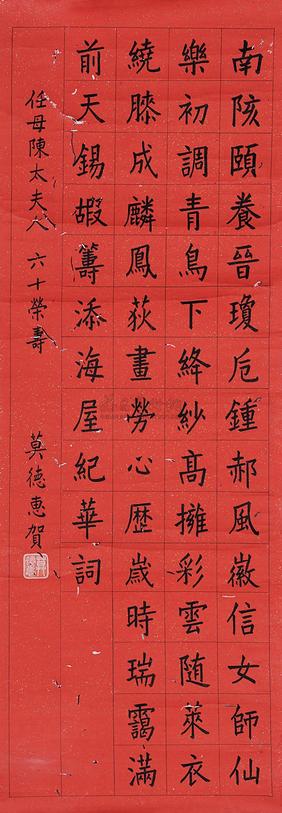 南陔頤養晉瓊卮鍾郝風徽信女師仙
樂初調青鳥下絳紗高擁彩雲隨萊衣
繞膝成麟鳳荻畫勞心歷歲時瑞靄滿
前天錫嘏籌添海屋紀華詞
任母陳太夫人 六十榮壽 莫德惠賀